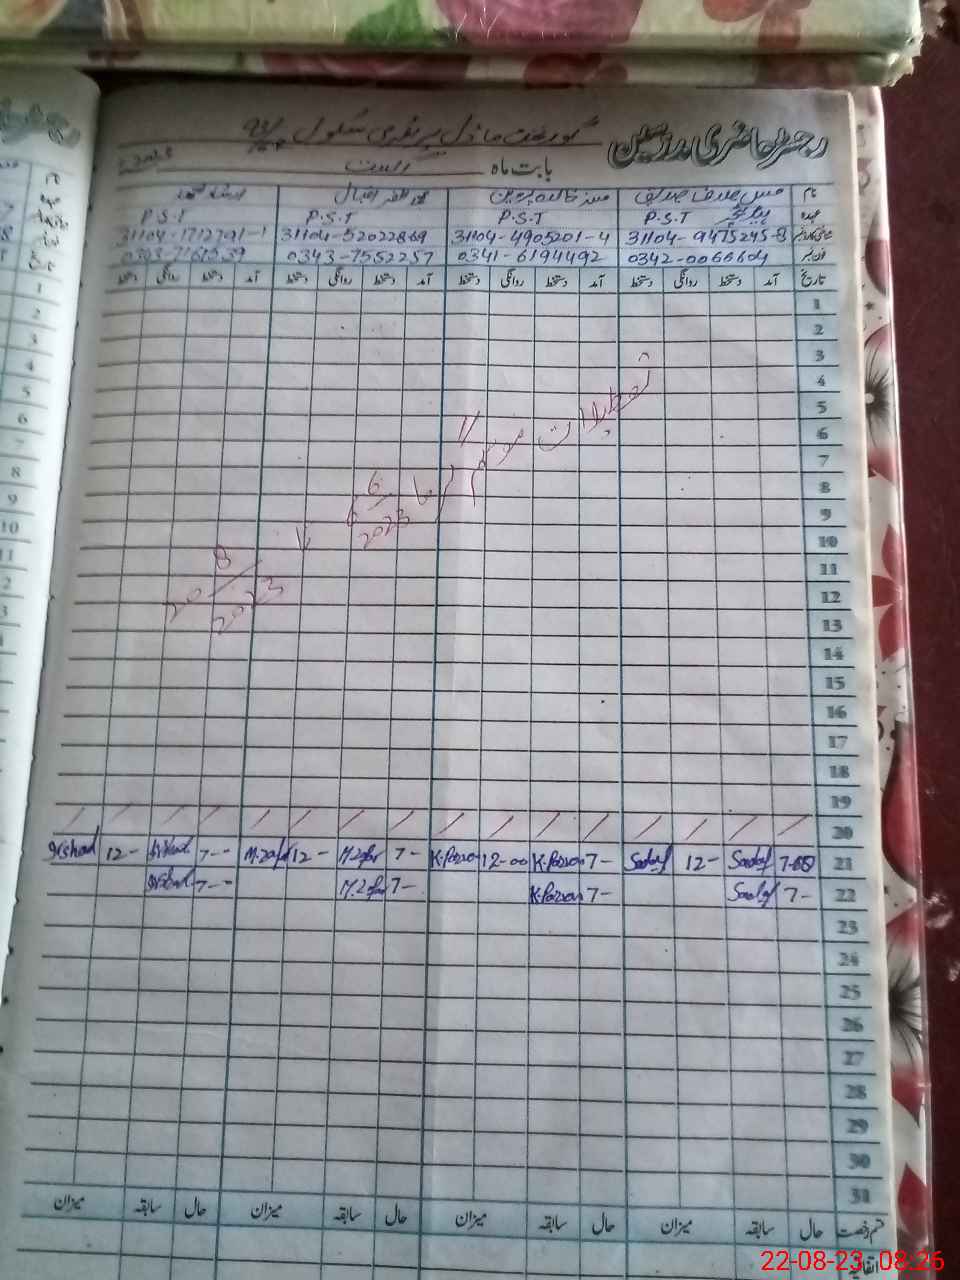 رجسٹر حاضری مدرسین گورنمنٹ ماڈل پرائمری سکول
بابت ماہ اگست
نام مس صدف صدیق مسز خالدہ پروین محمد ظفر اقبال ارشاد احمد
عہدہ P.S.T P.S.T P.S.T P.S.T
31104-9475245-8 31104-4905201-4 31104-52022869 31104-1712791-1
0342-0066604 0341-6194492 0343-7552257
تاریخ آمد دستخط روانگی دستخط آمد دستخط روانگی دستخط آمد دستخط روانگی دستخط آمد دستخط روانگی دستخط
1
2
3
4
5
6
7
8
9
10
11
12
13
14
15
16
17
18
19
20
تعطیلات موسم گرما 6/6/2023 تا 20/8/2023
21 7-00 Sadaf 12- Sadaf 7- K.Parveen 12-00 K.Parveen 7- M.Zafar 12- M.Zafar 7-- Irshad 12- Irshad
22 7- Sadaf 7- K.Parveen 7- M.Zafar 7-- Irshad
23
24
25
26
27
28
29
30
31
قسم رخصت حال سابقہ میزان حال سابقہ میزان حال سابقہ میزان حال سابقہ میزان
اتفاقیہ
22-08-23, 08:26